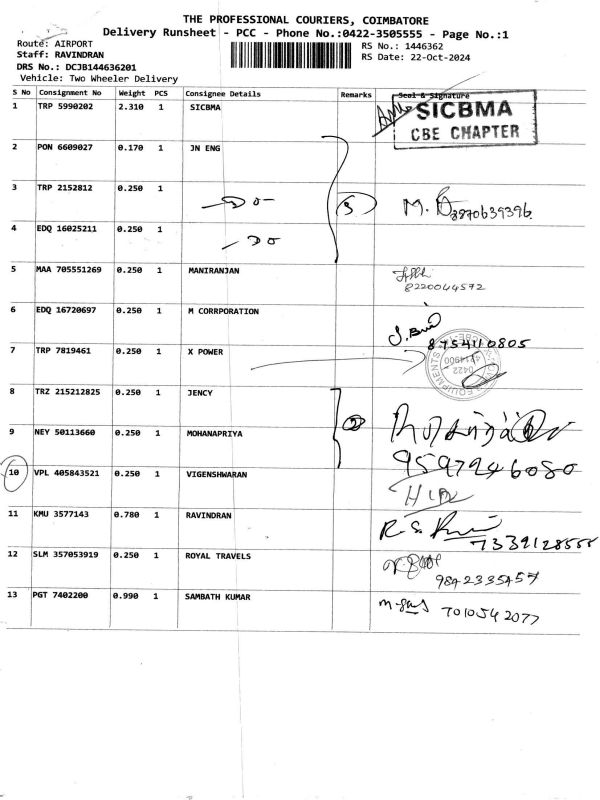 THE PROFESSIONAL COURIERS, COIMBATORE
Delivery Runsheet - PCC - Phone No.:0422-3505555 - Page No.:1
Route: AIRPORT
RS No.: 1446362
Staff: RAVINDRAN
RS Date: 22-Oct-2024
DRS No.: DCJB144636201
Vehicle: Two Wheeler Delivery
S No Consignment No Weight PCS Consignee Details Remarks Seal & Signature
1 TRP 5990202 2.310 1 SICBMA
SICBMA
CBE CHAPTER
2 PON 6609027 0.170 1 JN ENG
3 TRP 2152812 0.250 1 -Do- 3 M.
4 EDQ 16025211 0.250 1 -Do
5 MAA 705551269 0.250 1 MANIRANJAN
8220044572
6 EDQ 16720697 0.250 1 M CORRPORATION
8754110805
7 TRP 7819461 0.250 1 X POWER
EQUIPMENTS
0422
4214900
8 TRZ 215212825 0.250 1 JENCY 2
9 NEY 50113660 0.250 1 MOHANAPRIYA
9597946080
10 VPL 405843521 0.250 1 VIGENSHWARAN
11 KMU 3577143 0.780 1 RAVINDRAN
12 SLM 357053919 0.250 1 ROYAL TRAVELS
9842335457
13 PGT 7402200 0.990 1 SAMBATH KUMAR
7010542077